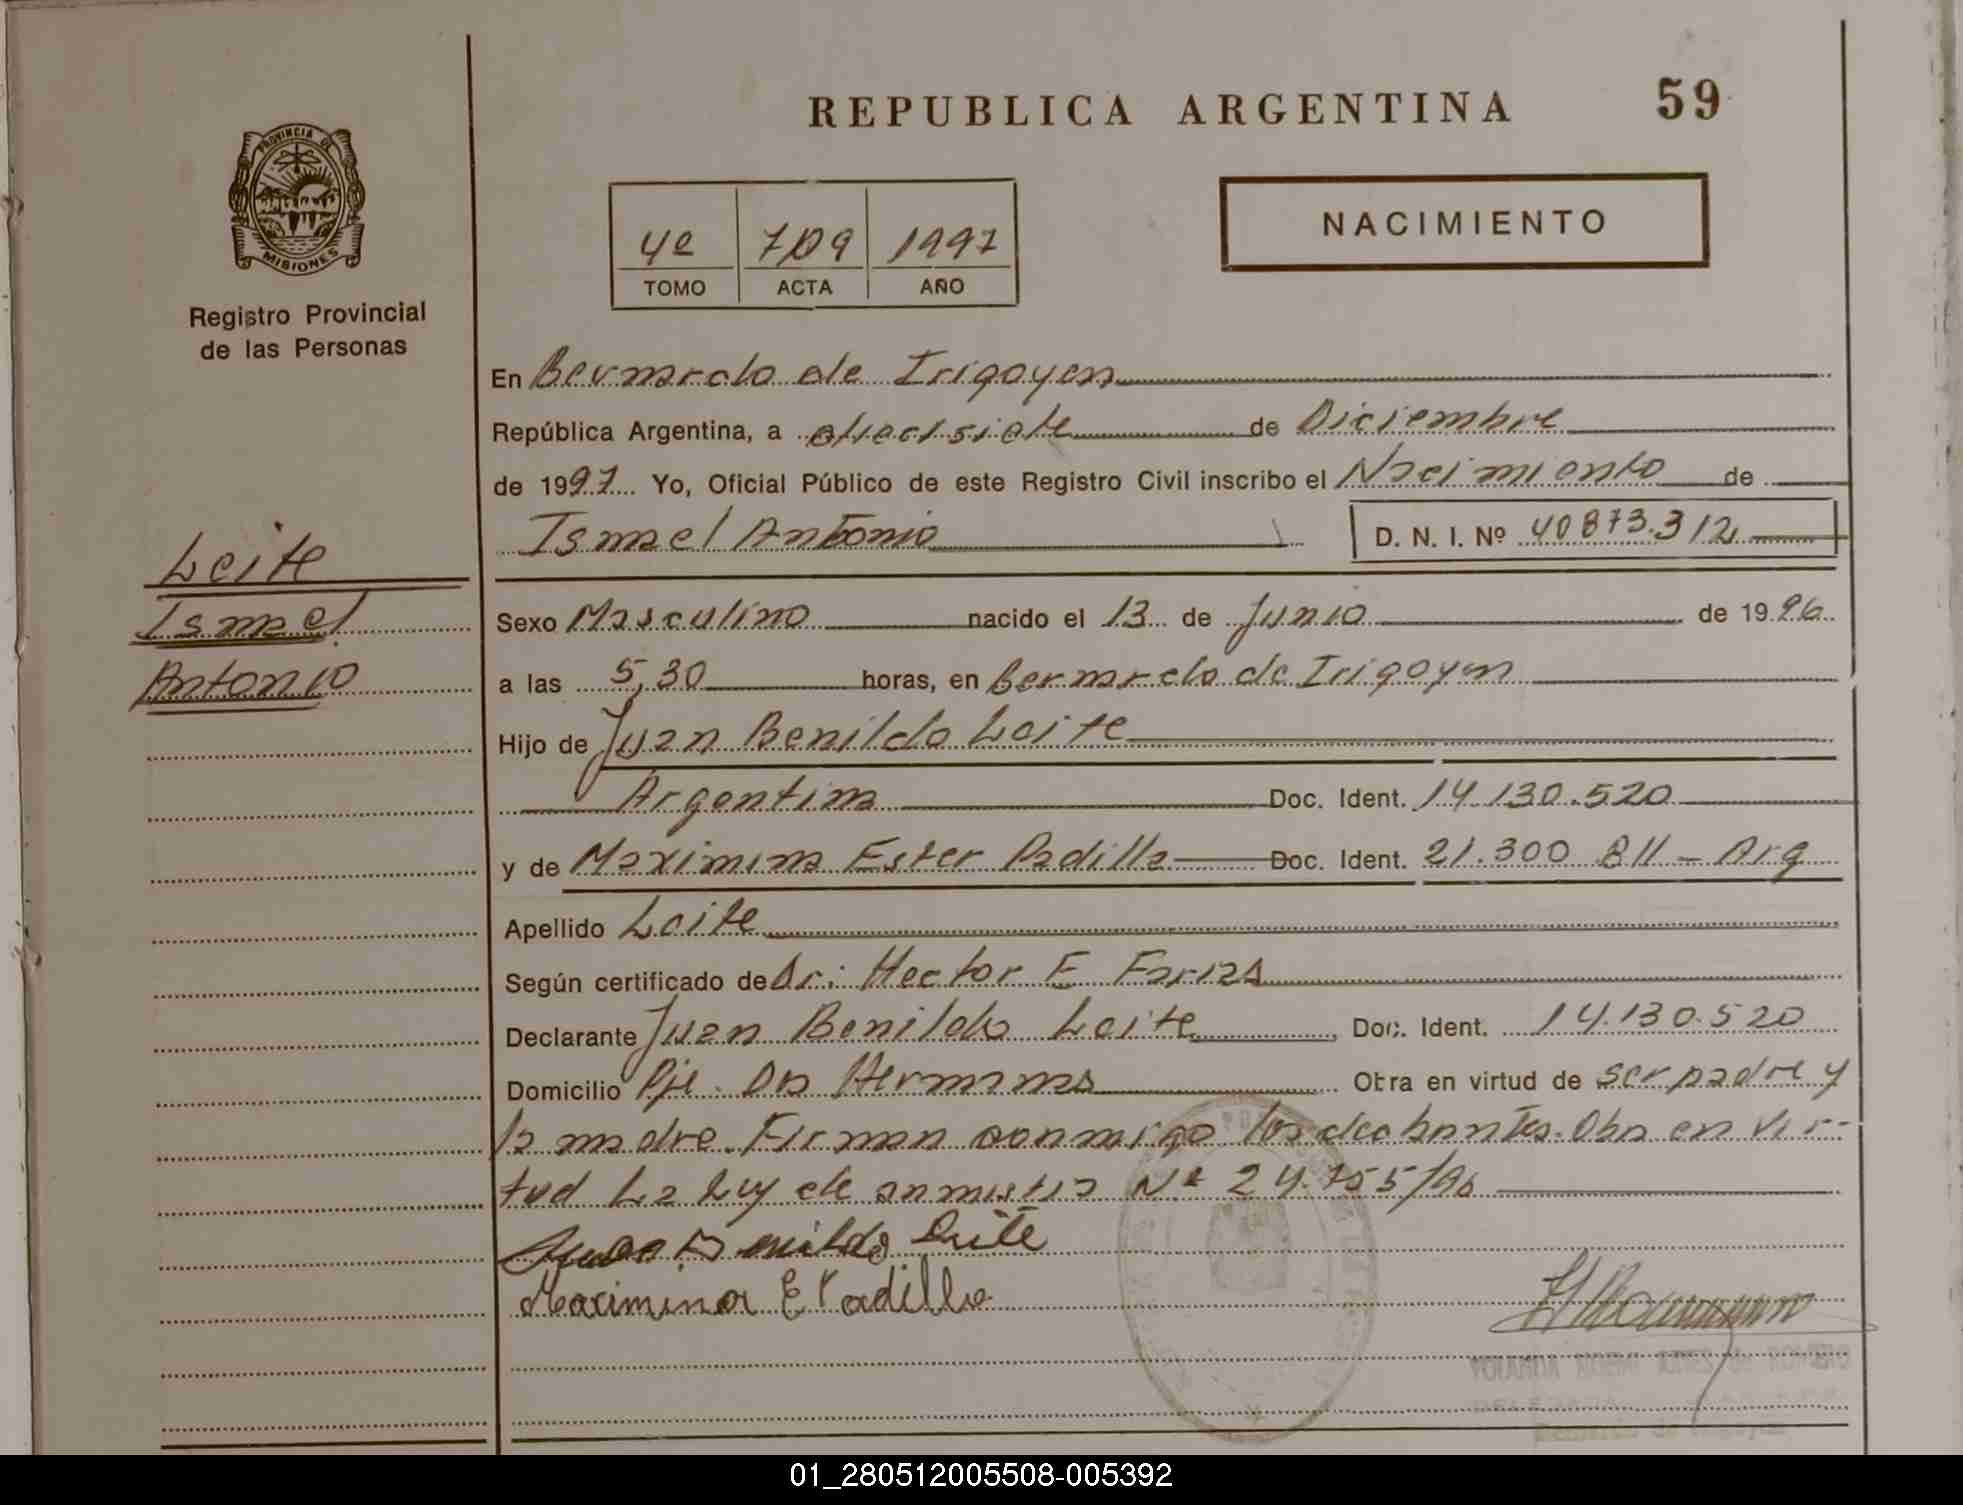 REPUBLICA ARGENTINA 59
PROVINCIA DE
MISIONES
Registro Provincial
de las Personas
4º 709 1997
TOMO ACTA AÑO
NACIMIENTO
En Bernardo de Irigoyen
República Argentina, a diecisiete de Diciembre
de 1997 Yo, Oficial Público de este Registro Civil inscribo el Nacimiento de
Ismael Antonio D. N. I. Nº 40873.312
Leite
Ismael
Antonio
Sexo Masculino nacido el 13 de Junio de 1996
a las 5,30 horas, en Bernardo de Irigoyen
Hijo de Juan Benildo Leite
Argentina Doc. Ident. 14.130.520
y de Maximina Ester Padilla Doc. Ident. 21.300 811 - Arg
Apellido Leite
Según certificado de Dr: Hector E Farias
Declarante Juan Benildo Leite, Doc. Ident. 14.130.520
Domicilio Pje. Dos Hermanas Obra en virtud de ser padre y
la madre. Firman conmigo los Obra en vir-
tud La Ley de amnistia Nº 24.755/96
Juan Benildo Leite
Maximina E Padilla
01_280512005508-005392